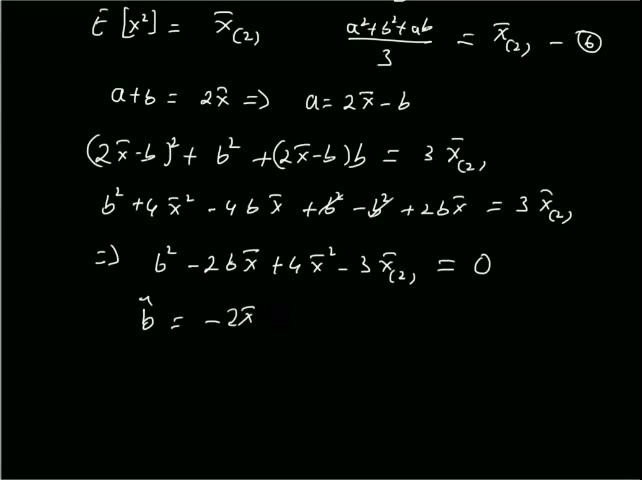 E [x²] = x̄₍₂₎   (a²+b²+ab)/3 = x̄₍₂₎ - ⑥
a+b = 2x̄ => a = 2x̄ - b
(2x̄-b)² + b² + (2x̄-b)b = 3 x̄₍₂₎
b² + 4x̄² - 4bx̄ + b² - b² + 2bx̄ = 3 x̄₍₂₎
=> b² - 2bx̄ + 4x̄² - 3x̄₍₂₎ = 0
b̂ = - 2x̄